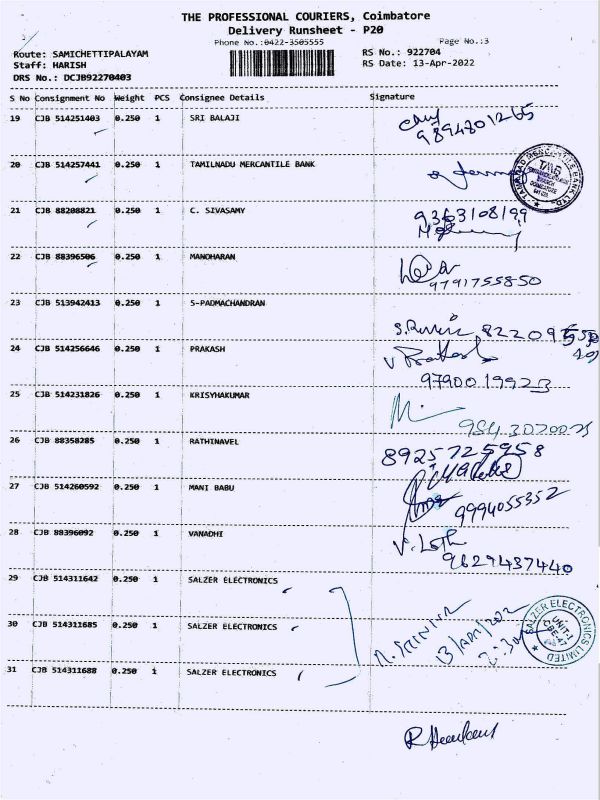 THE PROFESSIONAL COURIERS, Coimbatore
Delivery Runsheet - P20
Phone No.:0422-3505555 Page No.:3
Route: SAMICHETTIPALAYAM RS No.: 922704
Staff: HARISH RS Date: 13-Apr-2022
DRS No.: DCJB92270403
S No Consignment No Weight PCS Consignee Details Signature
19 CJB 514251403 0.250 1 SRI BALAJI
9894801265
20 CJB 514257441 0.250 1 TAMILNADU MERCANTILE BANK
TAMILNAD MERCANTILE BANK LTD. TMB
21 CJB 88208821 0.250 1 C. SIVASAMY 9363108199
22 CJB 88396506 0.250 1 MANOHARAN
9791755850
23 CJB 513942413 0.250 1 S-PADMACHANDRAN
82209
24 CJB 514256646 0.250 1 PRAKASH
9790019923
25 CJB 514231826 0.250 1 KRISYHAKUMAR
984 3020075
26 CJB 88358285 0.250 1 RATHINAVEL 8925725958
27 CJB 514260592 0.250 1 MANI BABU
9994055352
28 CJB 88396092 0.250 1 VANADHI
9629437440
29 CJB 514311642 0.250 1 SALZER ELECTRONICS
30 CJB 514311685 0.250 1 SALZER ELECTRONICS
SALZER ELECTRONICS LIMITED UNIT-1 CBE-47
31 CJB 514311688 0.250 1 SALZER ELECTRONICS